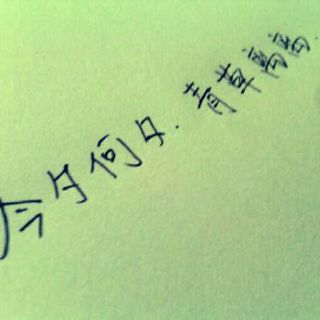 今夕何夕.青草离离.